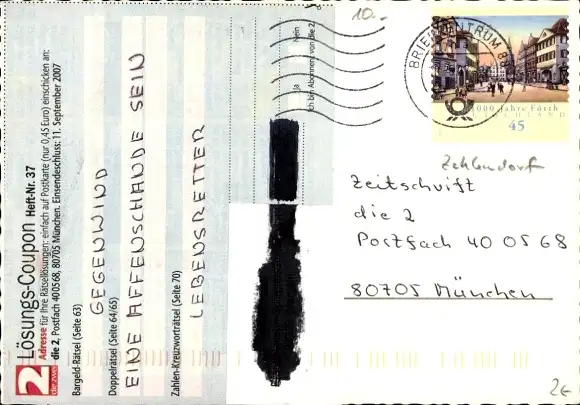 2 Lösungs-Coupon Heft-Nr. 37
Adresse für Ihre Rätsellösungen: einfach auf Postkarte (nur 0,45 Euro) einschicken an:
die 2, Postfach 400568, 80705 München. Einsendeschluss: 11. September 2007
Bargeld-Rätsel (Seite 63)
GEGENWIND
Doppelrätsel (Seite 64/65)
EINE AFFENSCHANDE SEIN
Zahlen-Kreuzworträtsel (Seite 70)
LEBENSRETTER
Ich bin Abonnent von die 2
Ja
Nein
10.-
BRIEFZENTRUM 8
1000 Jahre Fürth
DEUTSCHLAND
45
Zehlendorf
Zeitschrift
die 2
Postfach 40 05 68
80705 München
2€